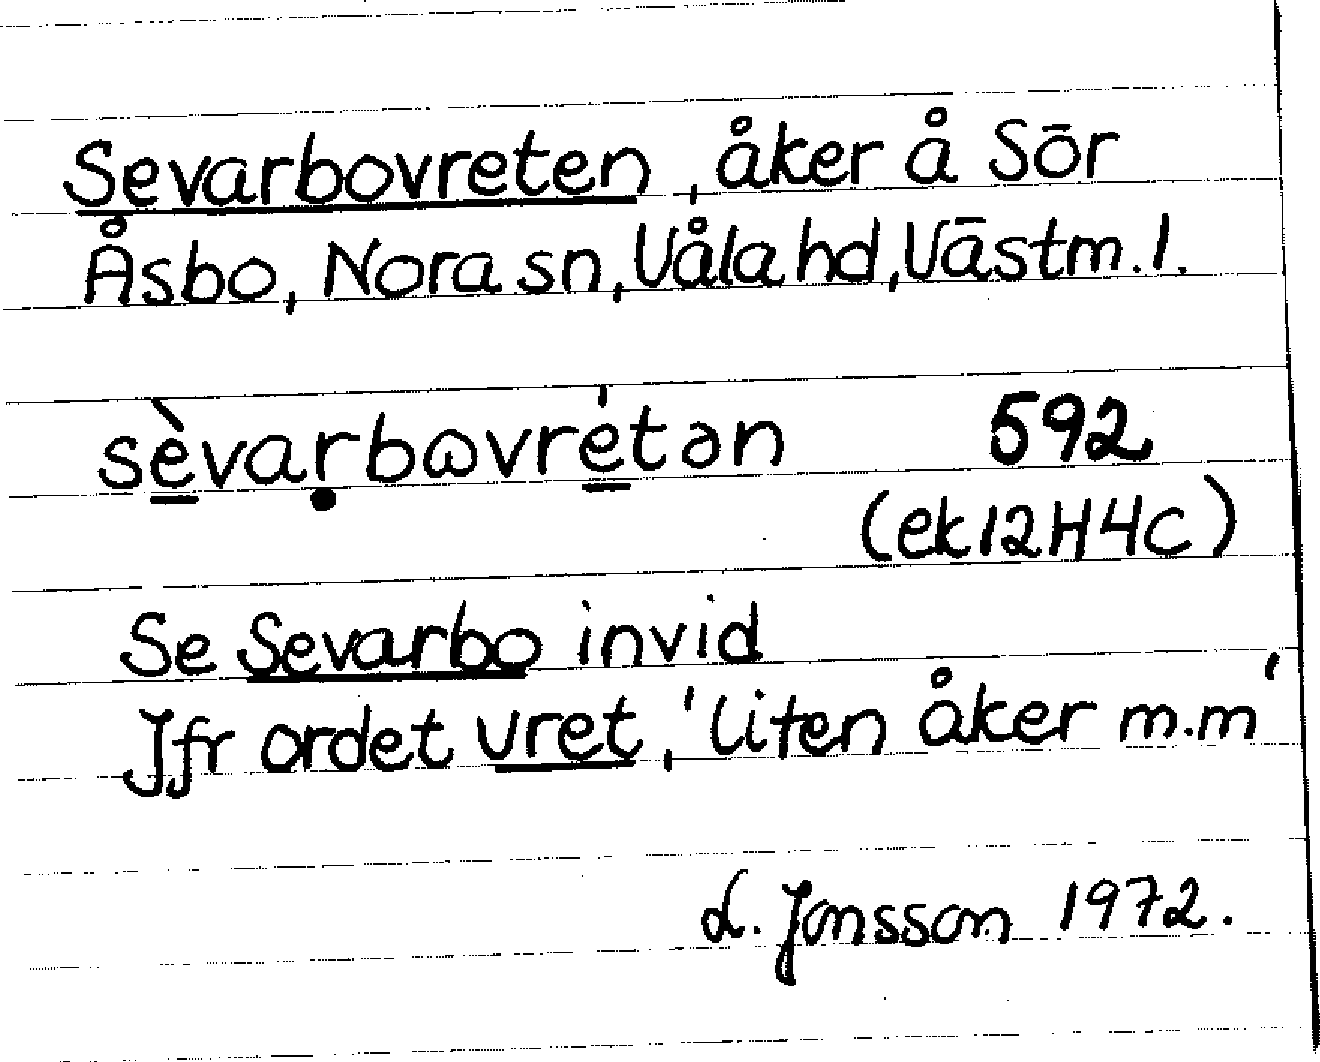 Sevarbovreten, åker å Sör
Åsbo, Nora sn, Våla hd, Västm. l.
sèvarbωvrétən 592
(ek 12H4c)
Se Sevarbo invid
Jfr ordet vret, 'liten åker m.m'
L. Jonsson 1972.